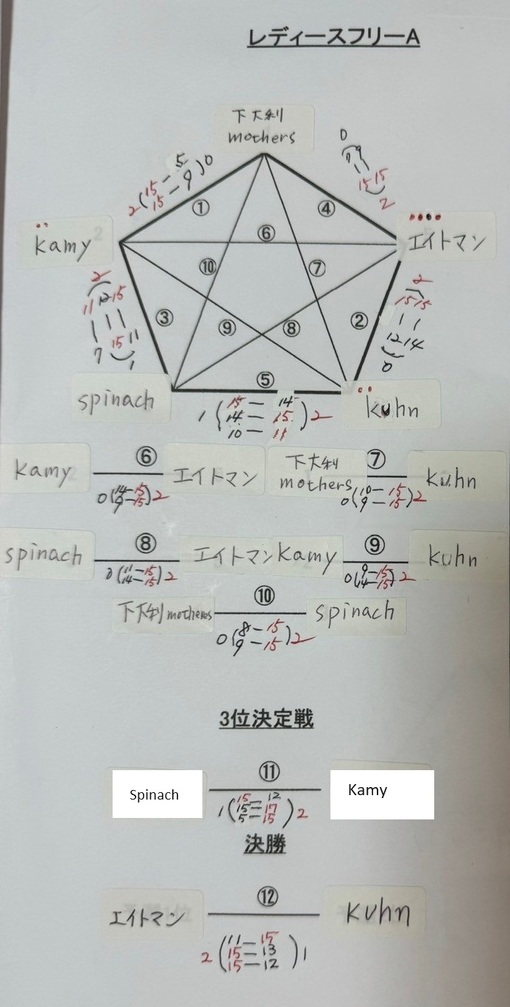 レディースフリーA
下大利
mothers
2(15-5 15-9)0
①
④
0
15 15
2
kamy
⑥
エイトマン
⑩
⑦
2
11 12 15
7 15 11
1
③
⑨
⑧
②
2
15 15
12 14
0
spinach
⑤
kuhn
1(15-14 14-15 10-11)2
kamy ⑥ エイトマン
0(14-15 9-15)2
下大利
mothers ⑦ kuhn
0(10-15 9-15)2
spinach ⑧ エイトマン
0(11-15 14-15)2
Kamy ⑨ kuhn
0(9-15 14-15)2
下大利mothers ⑩ spinach
0(8-15 9-15)2
3位決定戦
Spinach ⑪ Kamy
1(15-12 15-17 5-15)2
決勝
エイトマン ⑫ kuhn
2(11-15 15-13 15-12)1